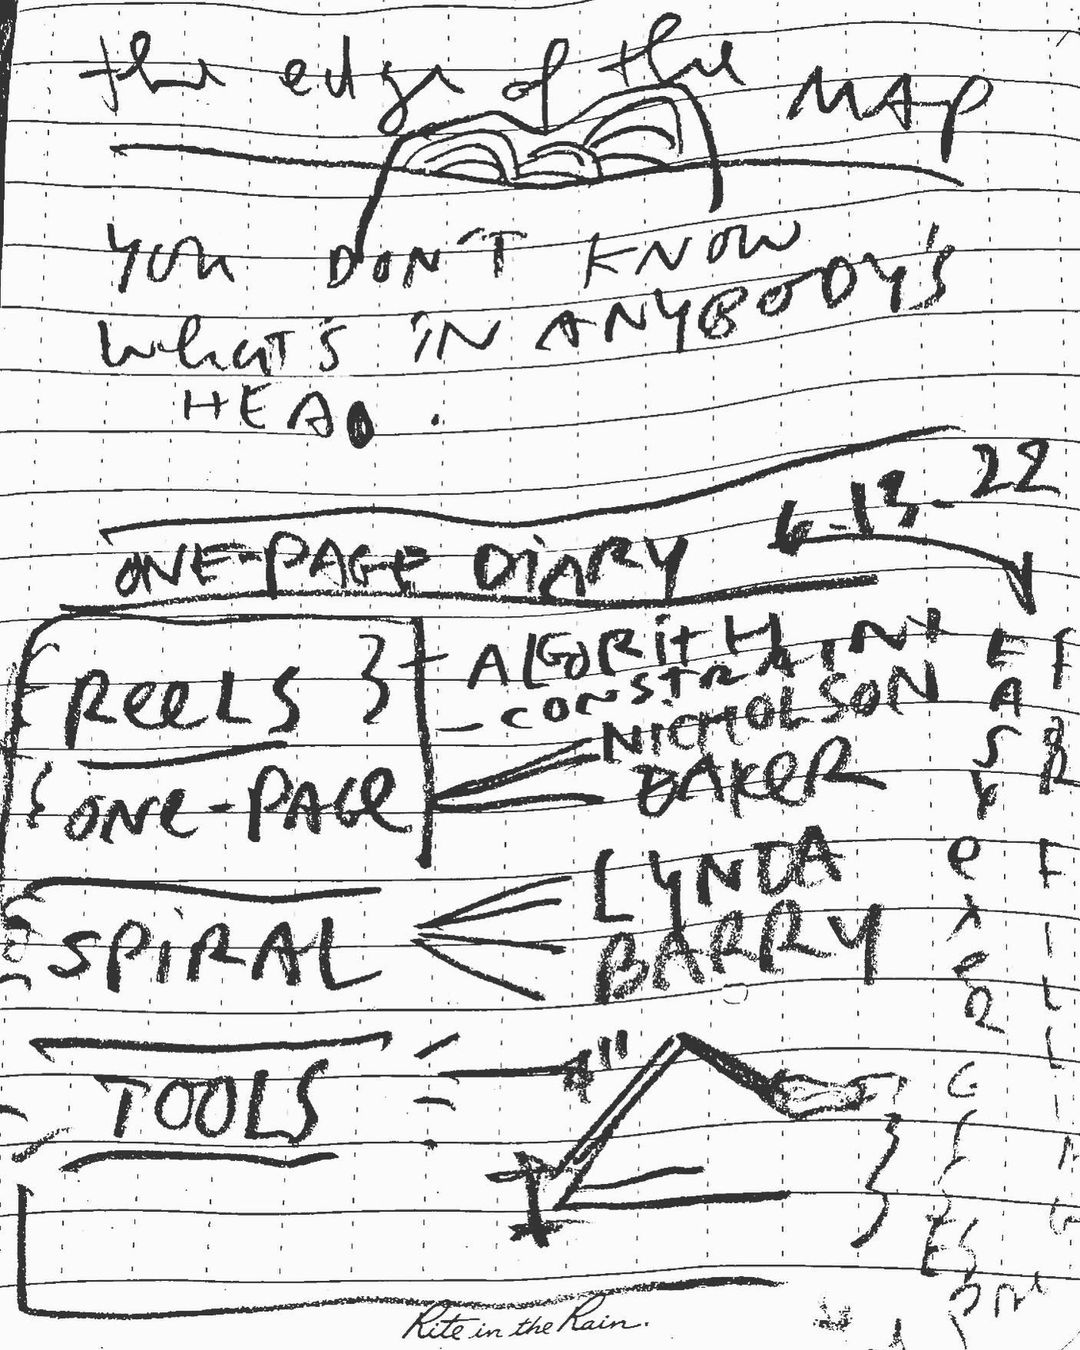 the edge of the MAP
YOU DON'T KNOW
WHAT'S IN ANYBODY'S
HEAD.
6-13-22
ONE-PAGE DIARY
REELS
- ALGORITHM
- CONSTRAINT
ONE-PAGE
NICHOLSON
BAKER
SPIRAL
LYNDA
BARRY
TOOLS
4"
EASY
FOR
FILLING
Rite in the Rain.